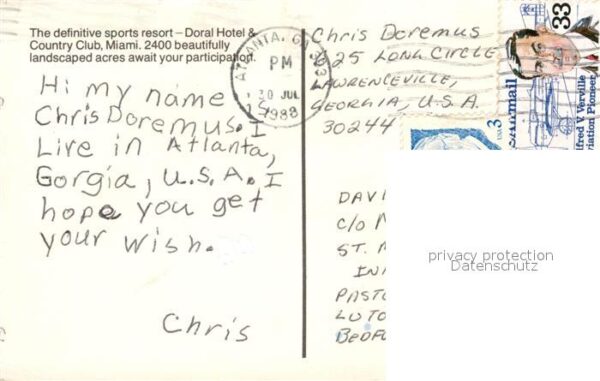 The definitive sports resort – Doral Hotel &
Country Club, Miami. 2400 beautifully
landscaped acres await your participation.
Hi my name
Chris Doremus. I
Live in Atlanta,
Gorgia, U.S.A. I
hope you get
your wish.
Chris
ATLANTA, GA 303
PM
30 JUL
1988
Chris Doremus
25 LONG CIRCLE
LAWRENCEVILLE,
GEORGIA, U.S.A.
30244
33
Alfred V. Verville
Aviation Pioneer
USAirmail
3
DAVI
C/O
ST.
IN
PASTO
LUTO
BEDFO
privacy protection
Datenschutz